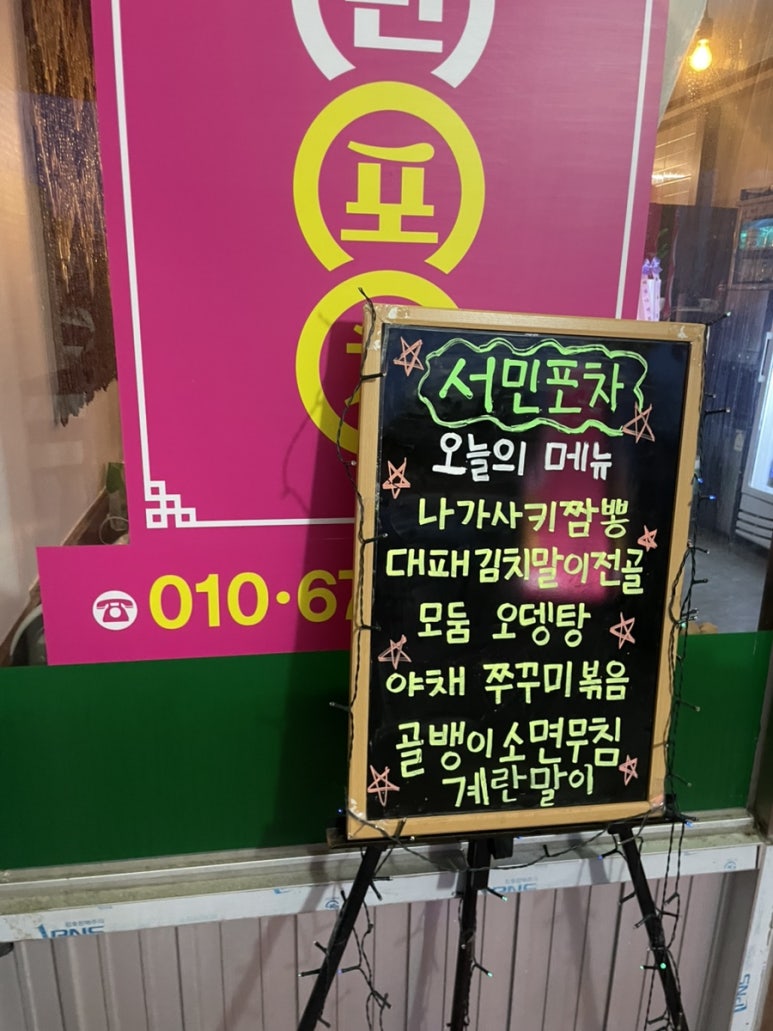 민
포
차
010·67
서민포차
오늘의 메뉴
나가사키짬뽕
대패김치말이전골
모둠 오뎅탕
야채 쭈꾸미볶음
골뱅이소면무침
계란말이